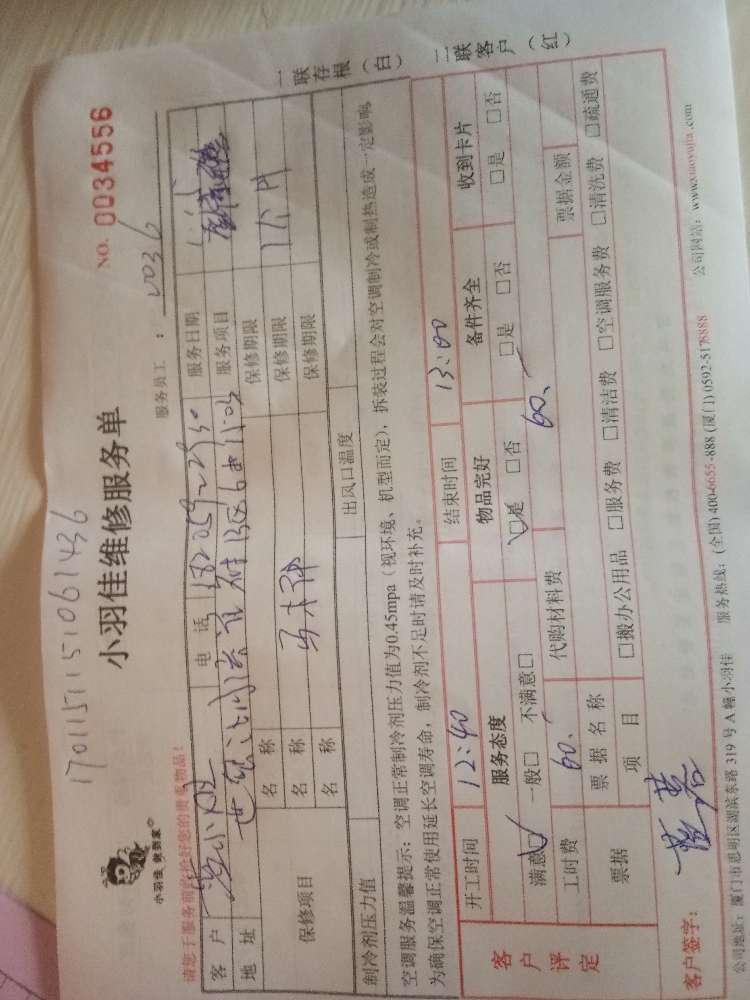 1701157115106143 6
小羽佳 就到家
小羽佳维修服务单
NO. 0034556
请您于服务前收拾好您的贵重物品!
服务员工: 0036
客户 电话 服务日期
地址 服务项目
保修项目 名称 保修期限 1个月
名称 保修期限
名称 保修期限
制冷剂压力值 出风口温度
空调服务温馨提示: 空调正常制冷剂压力值为0.45mpa(视环境、机型而定), 拆装过程会对空调制冷或制热造成一定影响,
为确保空调正常使用延长空调寿命, 制冷剂不足时请及时补充。
一联存根(白) 二联客户(红)
客户评定
开工时间 12:40 结束时间 13:00
服务态度 物品完好 备件齐全 收到卡片
满意☑ 一般□ 不满意□ ☑是 □否 □是 □否 □是 □否
工时费 60. 代购材料费 60. 票据金额
票据 票据名称
项目 □搬办公用品 □服务费 □清洁费 □空调服务费 □清洗费 □疏通费
客户签字:
公司地址: 厦门市思明区湖滨东路319号A幢小羽佳 服务热线: (全国) 400-6655-888 (厦门) 0592-5178888 公司网站: www.xiaoyujia.com